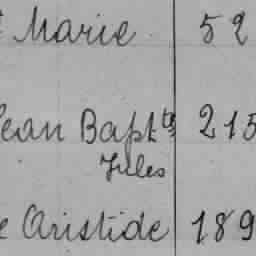 Marie 52
Jean Bapt^te 215
Jules
Aristide 189